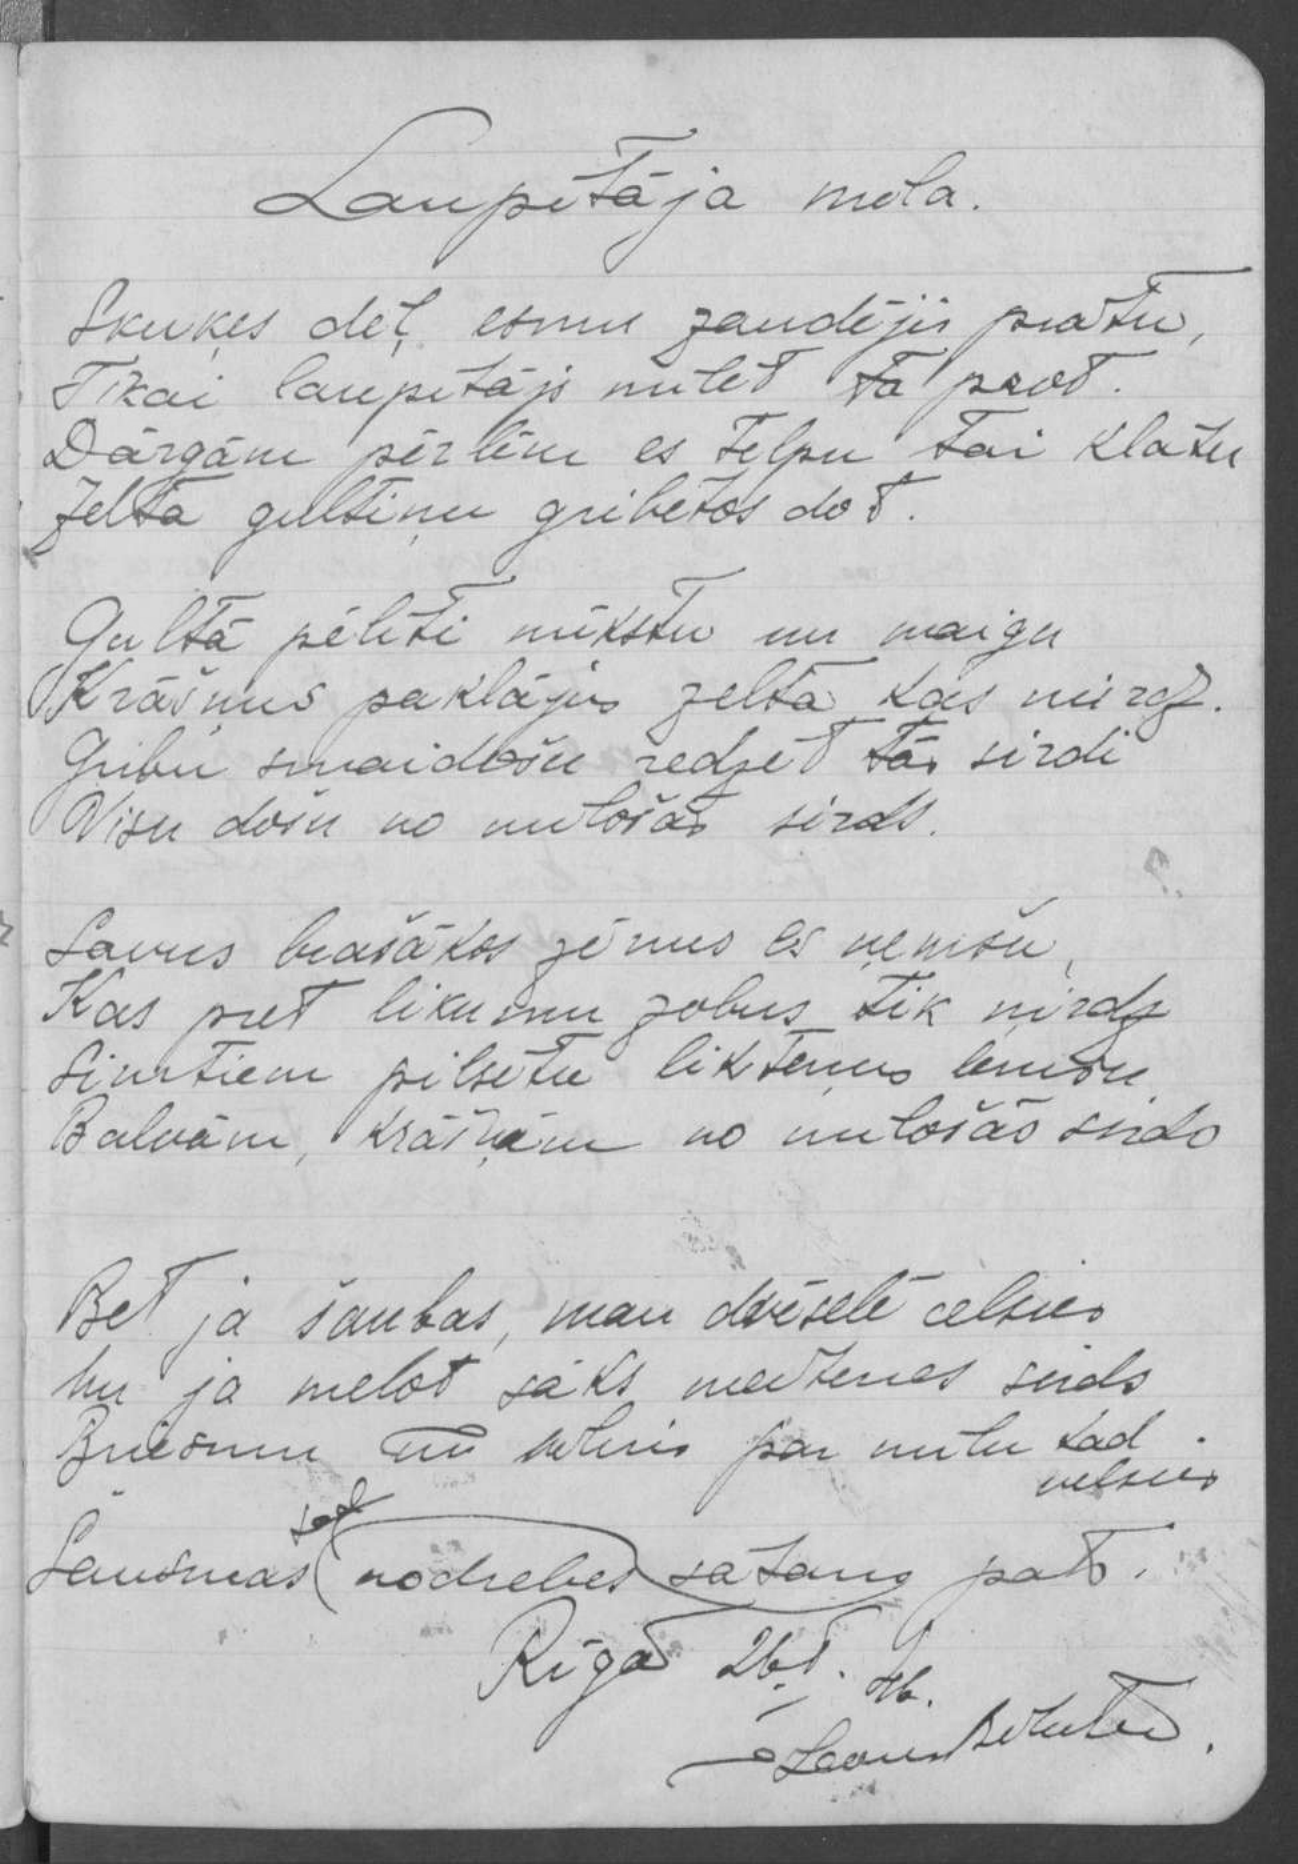 Laupītāja mīla.
Skuķes dēļ esmu zaudējis prātu,
Tikai laupītājs mīlēt tā prot.
Dārgām pērlēm es telpu tai klātu
Zelta gultiņu gribētos dot.
Gultā pēlīti mīkstu un maigu
Krāšņus paklājus zeltā kas mirdz.
Gribu smaidošu redzēt tās sirdi
Visu došu no mīlošās sirds.
Savus brašākos zēnus es ņemšu,
Kas pret likumu zobus tik ņirdz
Simtiem pilsētu liktenus lemšu
Balvām, krāšņām no mīlošās sirds
Bet ja šaubas, man dvēselē celsies
un ja melot sāks meitenes sirds
Briesmu par mīlu tad
velsies
tad
Šausmās nodrebēs satans pats.
Rīgā 26. I. 46.